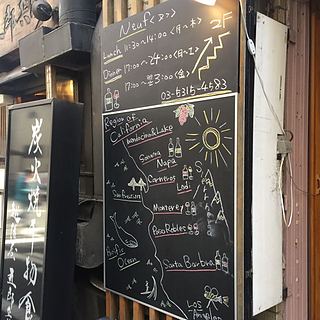 Neuf <ヌフ>
2F
Lunch 11:30~14:00 <月~木>
Dinner 17:00~24:00 <月~土>
17:00~翌3:00 <金>
03-5315-4583
Region of
California
Mendocino & Lake
Sonoma
Napa
Carneros
Lodi
San Francisco
Monterey
Paso Robles
Pacific
Ocean
Santa Barbara
Los
Angeles
炭火焼干物食